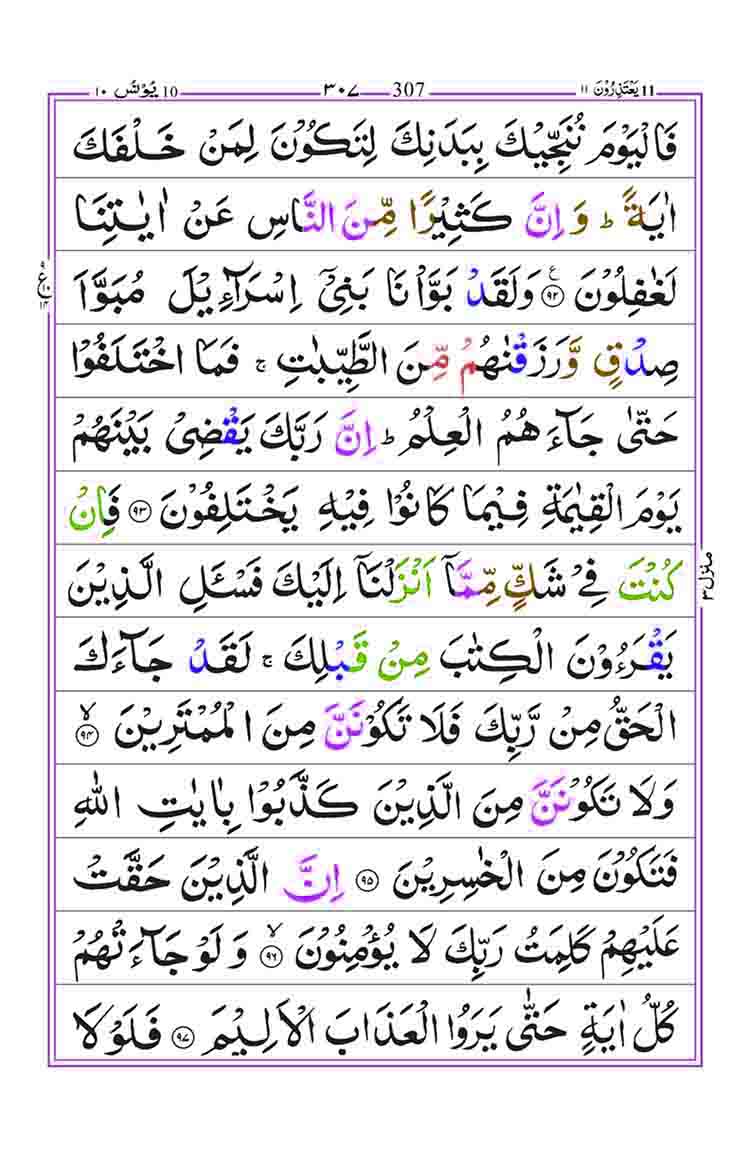 يَعْتَذِرُوْنَ ١١ 11 ٣٠٧ 307 يُوْنُس ١٠ 10
فَالْيَوْمَ نُنَجِّيْكَ بِبَدَنِكَ لِتَكُوْنَ لِمَنْ خَلْفَكَ
اٰيَةً ؕ وَ اِنَّ كَثِيْرًا مِّنَ النَّاسِ عَنْ اٰيٰتِنَا
لَغٰفِلُوْنَ ﴿۹۲﴾ وَلَقَدْ بَوَّاْنَا بَنِيْۤ اِسْرَآءِيْلَ مُبَوَّاَ
صِدْقٍ وَّرَزَقْنٰهُمْ مِّنَ الطَّيِّبٰتِ ۚ فَمَا اخْتَلَفُوْا
حَتّٰى جَآءَهُمُ الْعِلْمُ ؕ اِنَّ رَبَّكَ يَقْضِىْ بَيْنَهُمْ
يَوْمَ الْقِيٰمَةِ فِيْمَا كَانُوْا فِيْهِ يَخْتَلِفُوْنَ ﴿۹۳﴾ فَاِنْ
كُنْتَ فِىْ شَكٍّ مِّمَّاۤ اَنْزَلْنَاۤ اِلَيْكَ فَسْـَٔلِ الَّذِيْنَ
يَقْرَءُوْنَ الْكِتٰبَ مِنْ قَبْلِكَ ۚ لَقَدْ جَآءَكَ
الْحَقُّ مِنْ رَّبِّكَ فَلَا تَكُوْنَنَّ مِنَ الْمُمْتَرِيْنَ ۙ﴿۹۴﴾
وَلَا تَكُوْنَنَّ مِنَ الَّذِيْنَ كَذَّبُوْا بِاٰيٰتِ اللّٰهِ
فَتَكُوْنَ مِنَ الْخٰسِرِيْنَ ﴿۹۵﴾ اِنَّ الَّذِيْنَ حَقَّتْ
عَلَيْهِمْ كَلِمَتُ رَبِّكَ لَا يُؤْمِنُوْنَ ۙ﴿۹۶﴾ وَلَوْ جَآءَتْهُمْ
كُلُّ اٰيَةٍ حَتّٰى يَرَوُا الْعَذَابَ الْاَلِيْمَ ﴿۹۷﴾ فَلَوْلَا
منزل ٣